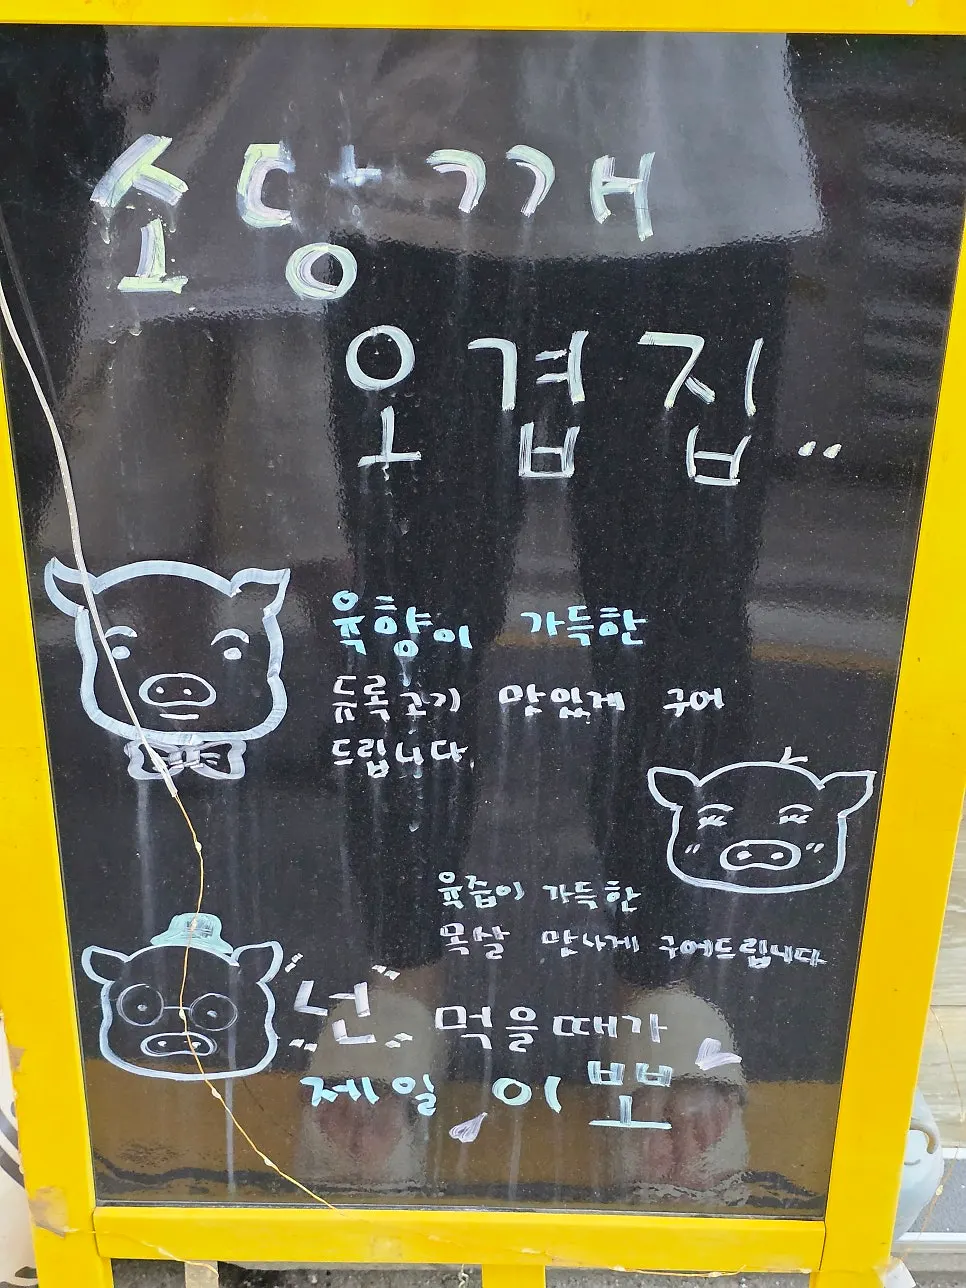 손당깨
오겹집..
육향이 가득한
듀록고기 맛있게 구어
드립니다.
육즙이 가득한
목살 맛나게 구어드립니다
넌 먹을때가
제일 이뽀